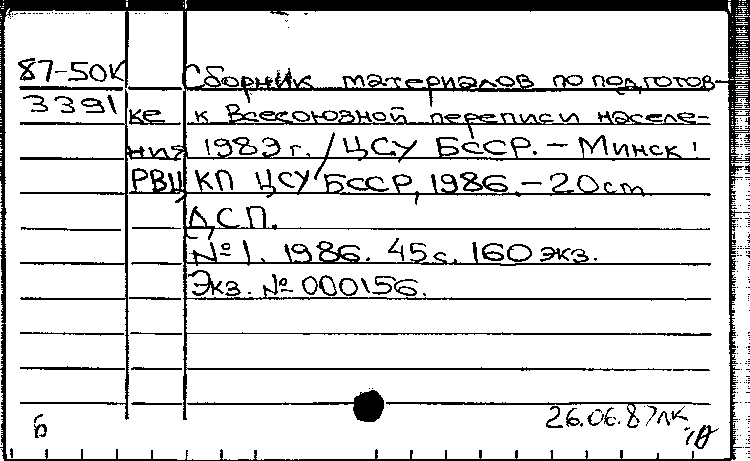 87-50К Сборник материалов по подготов-
3391 ке к Всесоюзной переписи населе-
ния 1989 г. / ЦСУ БССР. - Минск:
РВЦ КП ЦСУ БССР, 1986. - 20 cm
ДСП.
№ 1. 1986. 45 с. 160 экз.
Экз. № 000156.
26.06.87 лк
б